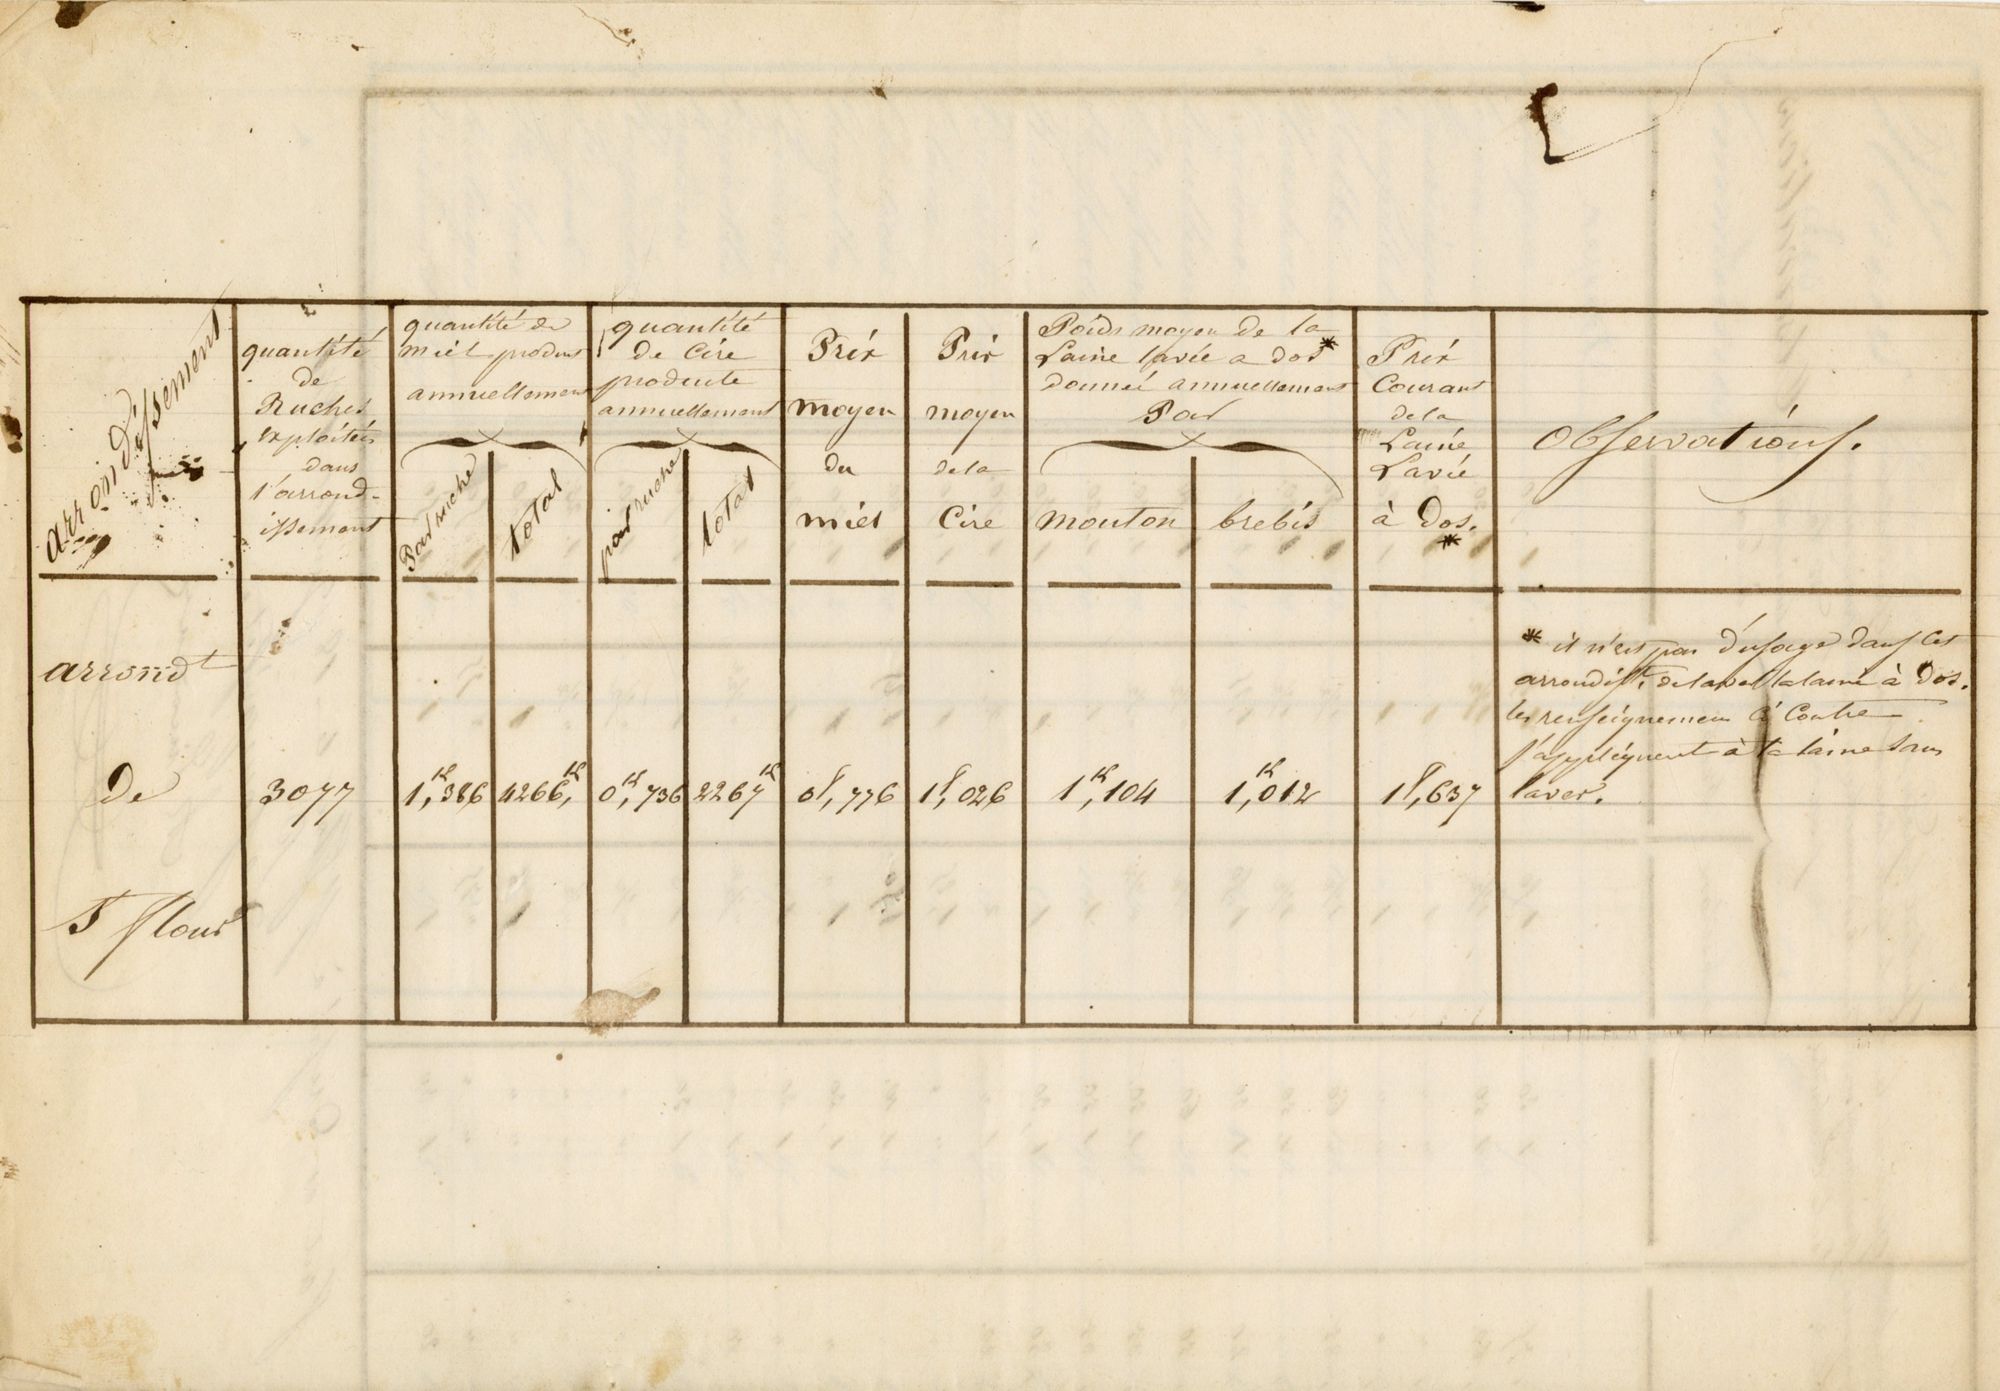 arrondissement
quantité
de
Ruches
exploités
dans
l'arrond-
issement
quantité de
miel produit
annuellement
Par ruche
total
quantité
de Cire
produite
annuellement
par ruche
total
Prix
moyen
du
miel
Prix
moyen
de la
Cire
Poids moyen de la
Laine lavée a dos *
donnée annuellement
Par
mouton
brebis
Prix
Courant
de la
Laine
Lavée
à Dos.
*
Observations.
arrondt
de
St flour
3077
1,k386
4266,k
0k,736
2267k
0f,776
1f,026
1k,104
1,k012
1f,637
* il n'est pas d'usage dans cet
arrondisst. de laver la laine à Dos.
les renseignemens Ci Contre
s'appliquent à la laine sans
laver.